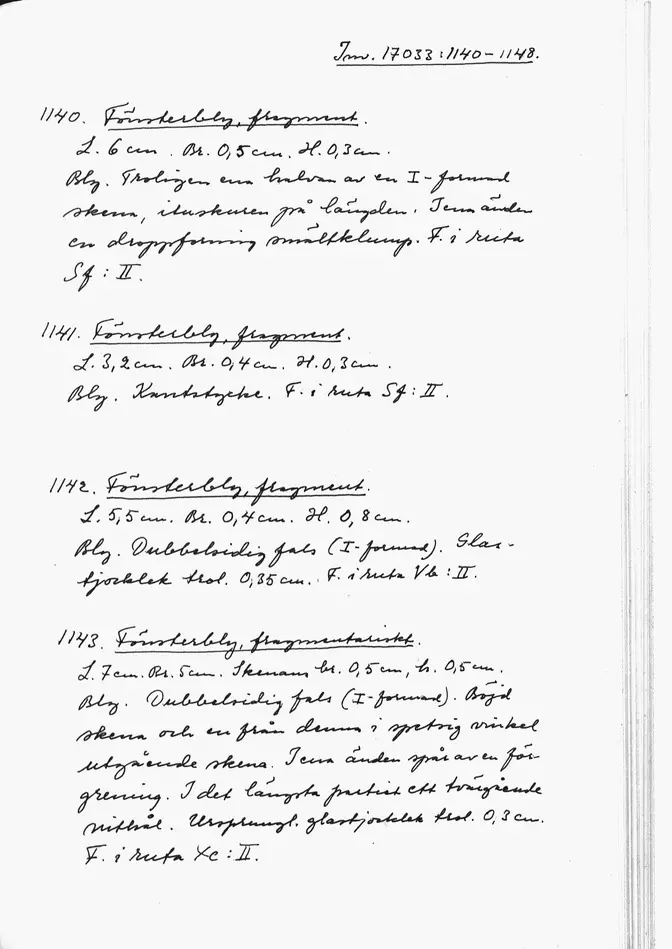 Inv. 17033:1140-1148.
1140. Fönsterbly, fragment.
L. 6 cm. Br. 0,5 cm. H. 0,3 cm.
Bly. Troligen ena halvan av en I-formad
skena, ituskuren på längden. I ena änden
en droppformig smältklump. F. i ruta
Sf:II.
1141. Fönsterbly, fragment.
L. 3,2 cm. Br. 0,4 cm. H. 0,3 cm.
Bly. Kantstycke. F. i ruta Sf:II.
1142. Fönsterbly, fragment.
L. 5,5 cm. Br. 0,4 cm. H. 0,8 cm.
Bly. Dubbelsidig fals (I-formad). Glas-
tjocklek trol. 0,35 cm. F. i ruta Vb:II.
1143. Fönsterbly, fragmentariskt.
L. 7 cm. Br. 5 cm. Skenans br. 0,5 cm, h. 0,5 cm.
Bly. Dubbelsidig fals (I-formad). Böjd
skena och en från denna i spetsig vinkel
utgående skena. I ena änden spår av en för-
grening. I det längsta partiet ett tvärgående
nithål. Ursprungl. glastjocklek trol. 0,3 cm.
F. i ruta Xc:II.